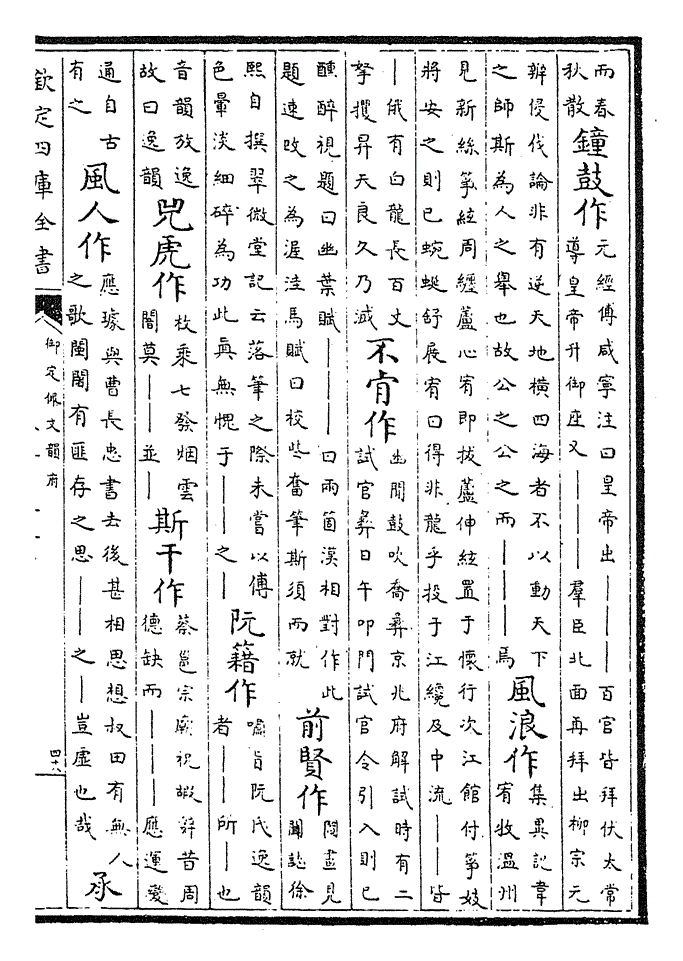 而春
秋散
鐘鼓作
元經傅咸寧注曰皇帝出———百官皆拜伏太常
導皇帝升御座又———羣臣北面再拜出柳宗元
辨侵伐論非有逆天地橫四海者不以動天下
之師斯為人之舉也故公之公之而———焉
風浪作
集異記韋
宥牧溫州
見新絲筝絃周纏蘆心宥即拔蘆伸絃置于懷行次江館付筝妓
將安之則已蜿蜒舒展宥曰得非龍乎投于江纔及中流——皆
—俄有白龍長百丈
拏攫昇天良久乃滅
不肯作
幽閒鼓吹喬彝京兆府解試時有二
試官彝日午叩門試官令引入則已
醺醉視題曰幽葉賦———曰兩箇漢相對作此
題速改之為渥洼馬賦曰校些奮筆斯須而就
前賢作
圖畫見
聞誌徐
熙自撰翠微堂記云落筆之際未嘗以傅
色暈淡細碎為功此眞無愧于——之—
阮籍作
嘯旨阮氏逸韻
者——所—也
音韻放逸
故曰逸韻
兕虎作
枚乘七發烟雲
闇莫———並—
斯干作
蔡邕宗廟祝嘏辭昔周
德缺而———應運變
通自古
有之
風人作
應璩與曹長忠書去後甚相思想叔田有無人
之歌闉闍有匪存之思——之—豈虛也哉
承
欽定四庫全書
御定佩文韻府